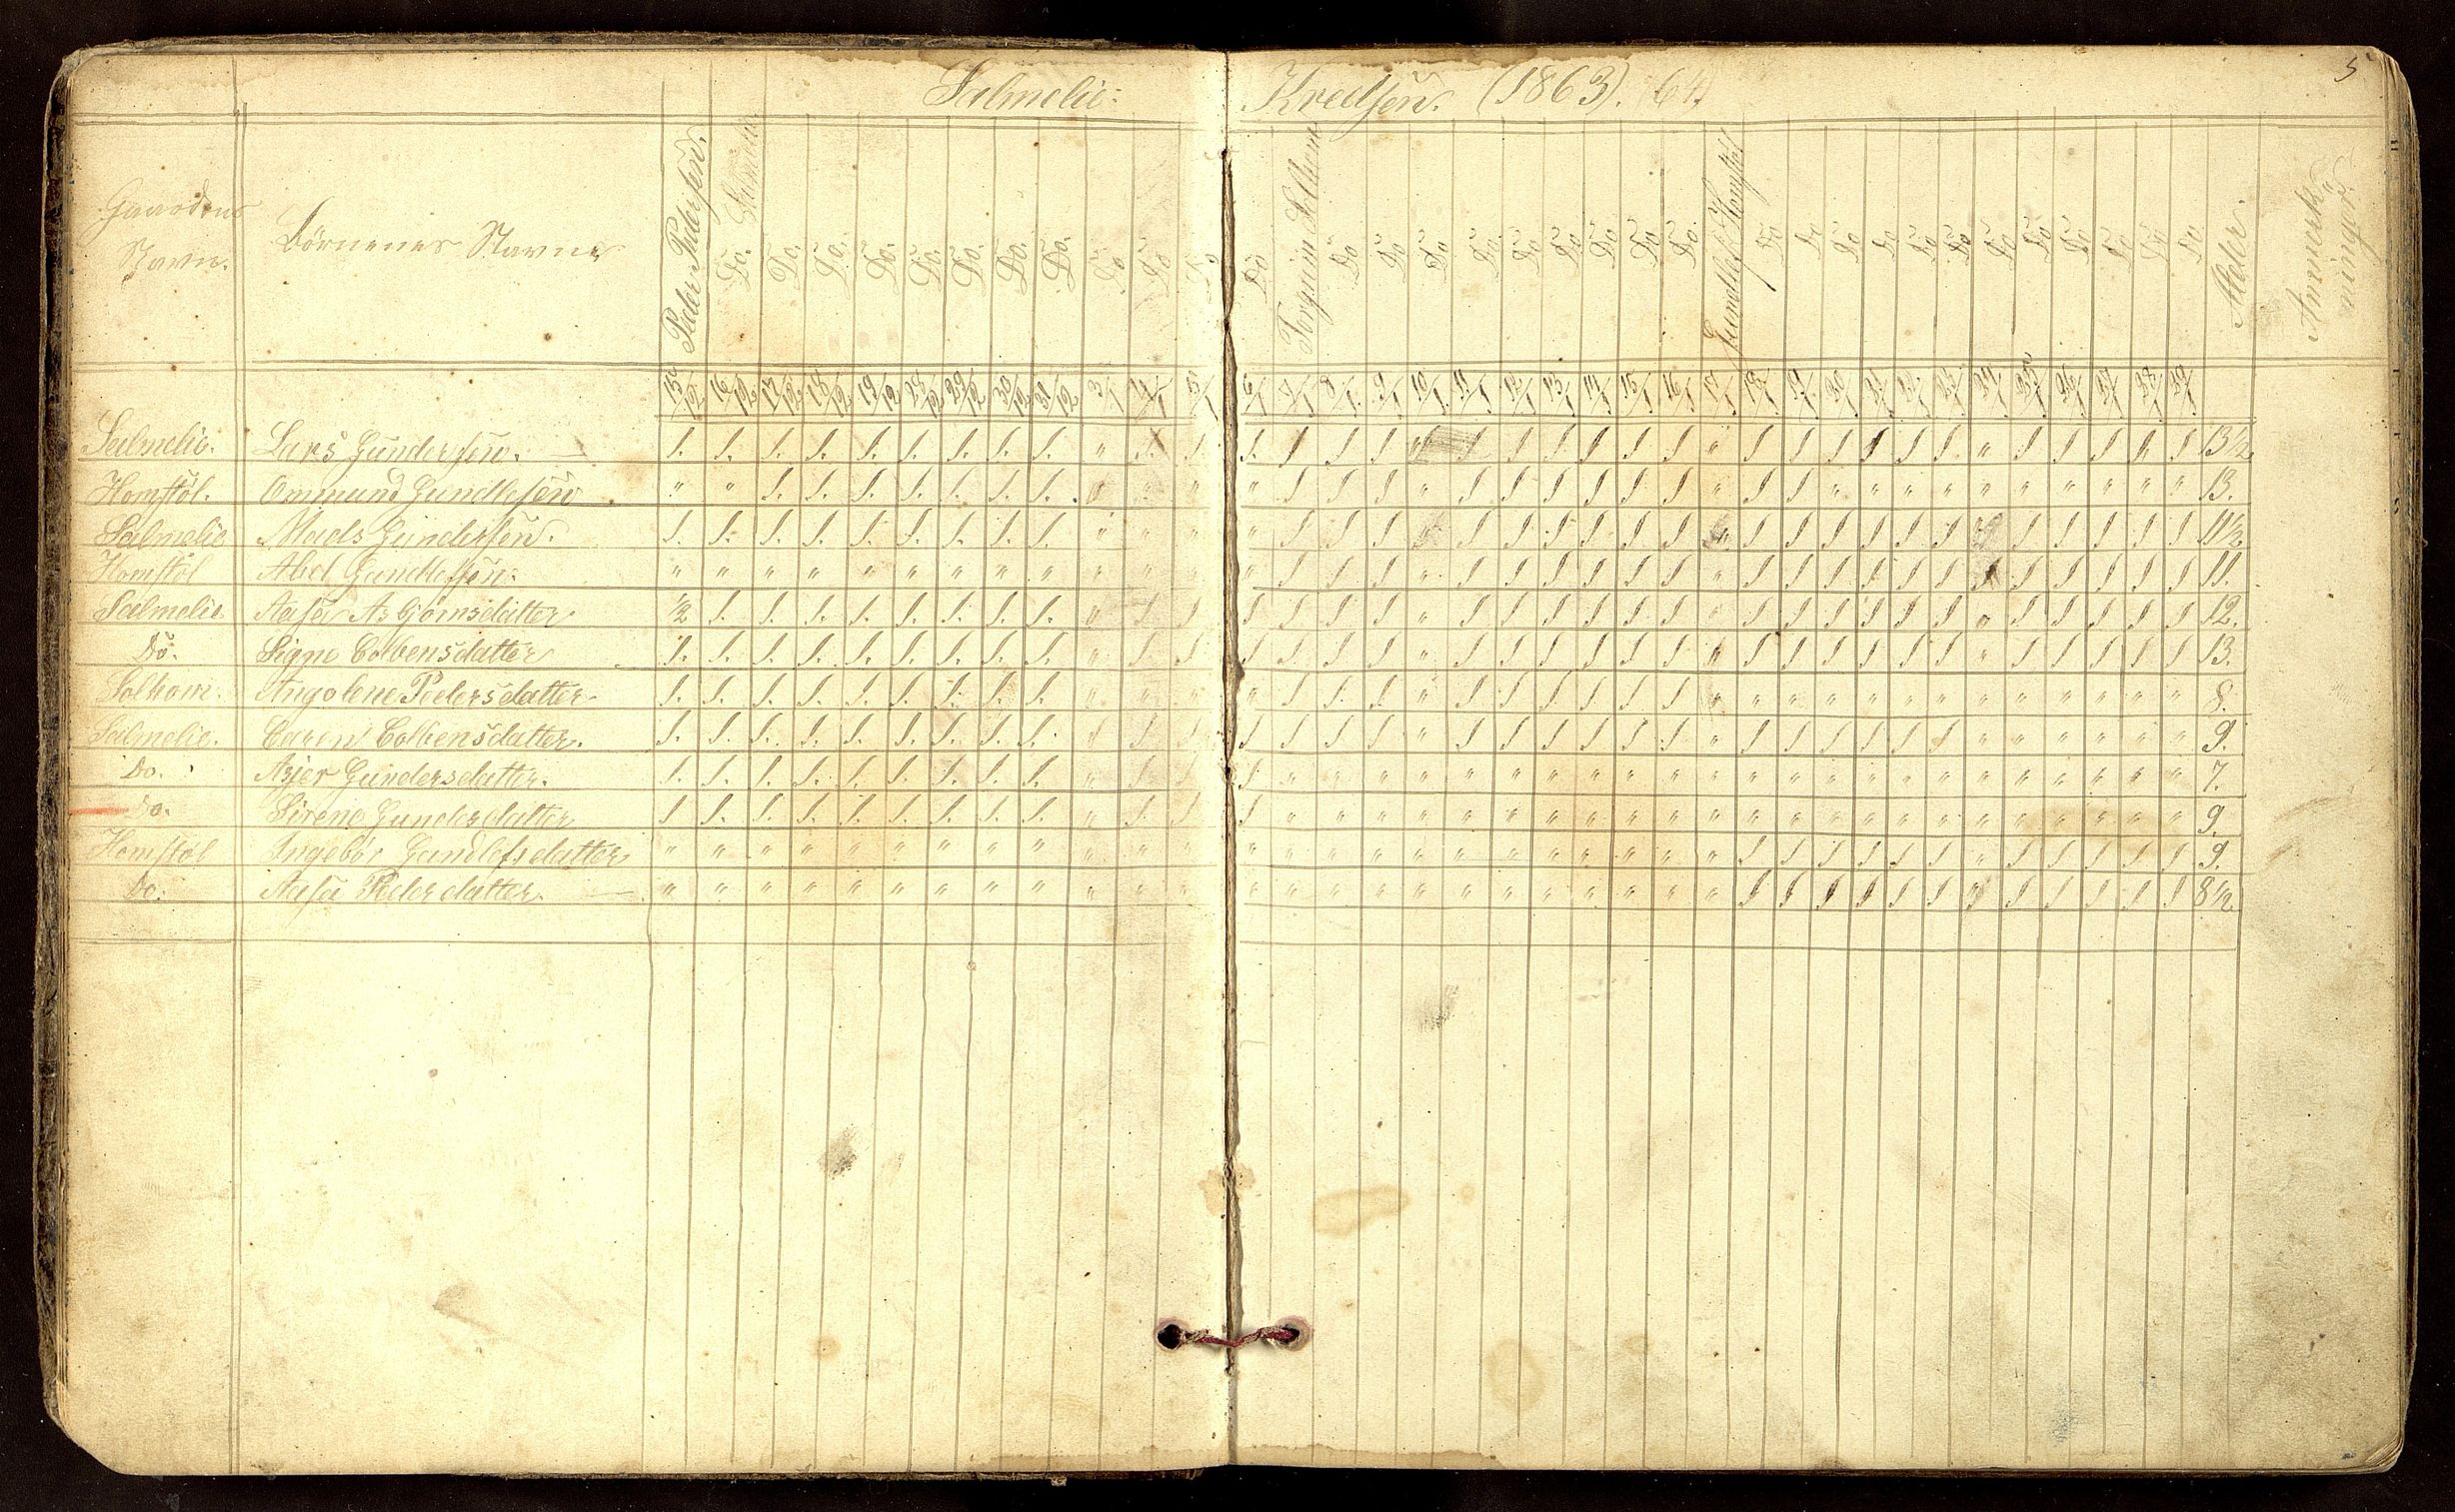 5
Salmelie: Kredsen. (1863). 64)
Gaardens Navn. Börnenes Navne Peder Pedersen. Salmelie. Do. Do. Do. Do. Do. Do. Do. Do. Do Do Do Do Torgrim Solhom Do Do Do Do. Do Do Do Do Do. Gundlef Homstöl Do Do Do Do Do Do Do Do Do Do Do Do. Alder. Anmærkninger.
15/12 16/12 17/12 18/12 19/12 28/12 29/12 30/12 31/12 3/1 4/1 5/1 6/1 7/1 8/1 9/1 10/1 11/1 12/1 13/1 14/1 15/1 16/1 17/1 18/1 19/1 20/1 21/1 22/1 23/1 24/1 25/1 26/1 27/1 28/1 29/1
Salmelie. Lars Gundersen. 1. 1. 1. 1. 1. 1. 1. 1. 1. " 1. 1. 1. 1 1 1 " 1 1 1 1 1 1 " 1 1 1 1 1 1 " 1 1 1 1 1 13 1/2
Homstöl. Ommund Gundlefsen " " 1. 1. 1. 1. 1. 1. 1. " " " " 1 1 1 " 1 1 1 1 1 1 " 1 1 " " " " " " " " " " 13.
Salmelie Mads Gundersen. 1. 1. 1. 1. 1. 1. 1. 1. 1. " " " " 1 1 1 " 1 1 1 1 1 1 " 1 1 1 1 1 1 " 1 1 1 1 1 11 1/2
Homstöl Abel Gundlefsen. " " " " " " " " " " " " " 1 1 1 " 1 1 1 1 1 1 " 1 1 1 1 1 1 1 1 1 1 1 1 11.
Salmelie Aasa Asbjörnsdatter 1/2 1. 1. 1. 1. 1. 1. 1. 1. " 1 1 1 1 1 1 " 1 1 1 1 1 1 " 1 1 1 1 1 1 " 1 1 1 1 1 12.
Do. Signe Colbensdatter 1. 1. 1. 1. 1. 1. 1. 1. 1. " 1. 1. 1 1 1 1 " 1 1 1 1 1 1 " 1 1 1 1 1 1 " 1 1 1 1 1 13.
Solhom. Angolene Pedersdatter 1. 1. 1. 1. 1. 1. 1. 1. 1. " " " " 1 1 1 " 1 1 1 1 1 1 " " " " " " " " " " " " " 8.
Salmelie. Caren Colbensdatter. 1. 1. 1. 1. 1. 1. 1. 1. 1. " 1 1 1 1 1 1 " 1 1 1 1 1 1 " 1 1 1 1 1 1 " " " " " " 9.
Do. Asjer Gundersdatter. 1. 1. 1. 1. 1. 1. 1. 1. 1. " 1 1 1 " " " " " " " " " " " " " " " " " " " " " " " 7.
Do. Sirene Gundersdatter 1 1. 1. 1. 1. 1. 1. 1. 1. " 1. 1 1 " " " " " " " " " " " " " " " " " " " " " " " 9.
Homstöl Ingebör Gundlefsdatter " " " " " " " " " " " " " " " " " " " " " " " " 1 1 1 1 1 1 " 1 1 1 1 1 9.
Do. Aasa Pedersdatter. " " " " " " " " " " " " " " " " " " " " " " " " 1 1 1 1 1 1 " 1 1 1 1 1 8 1/2